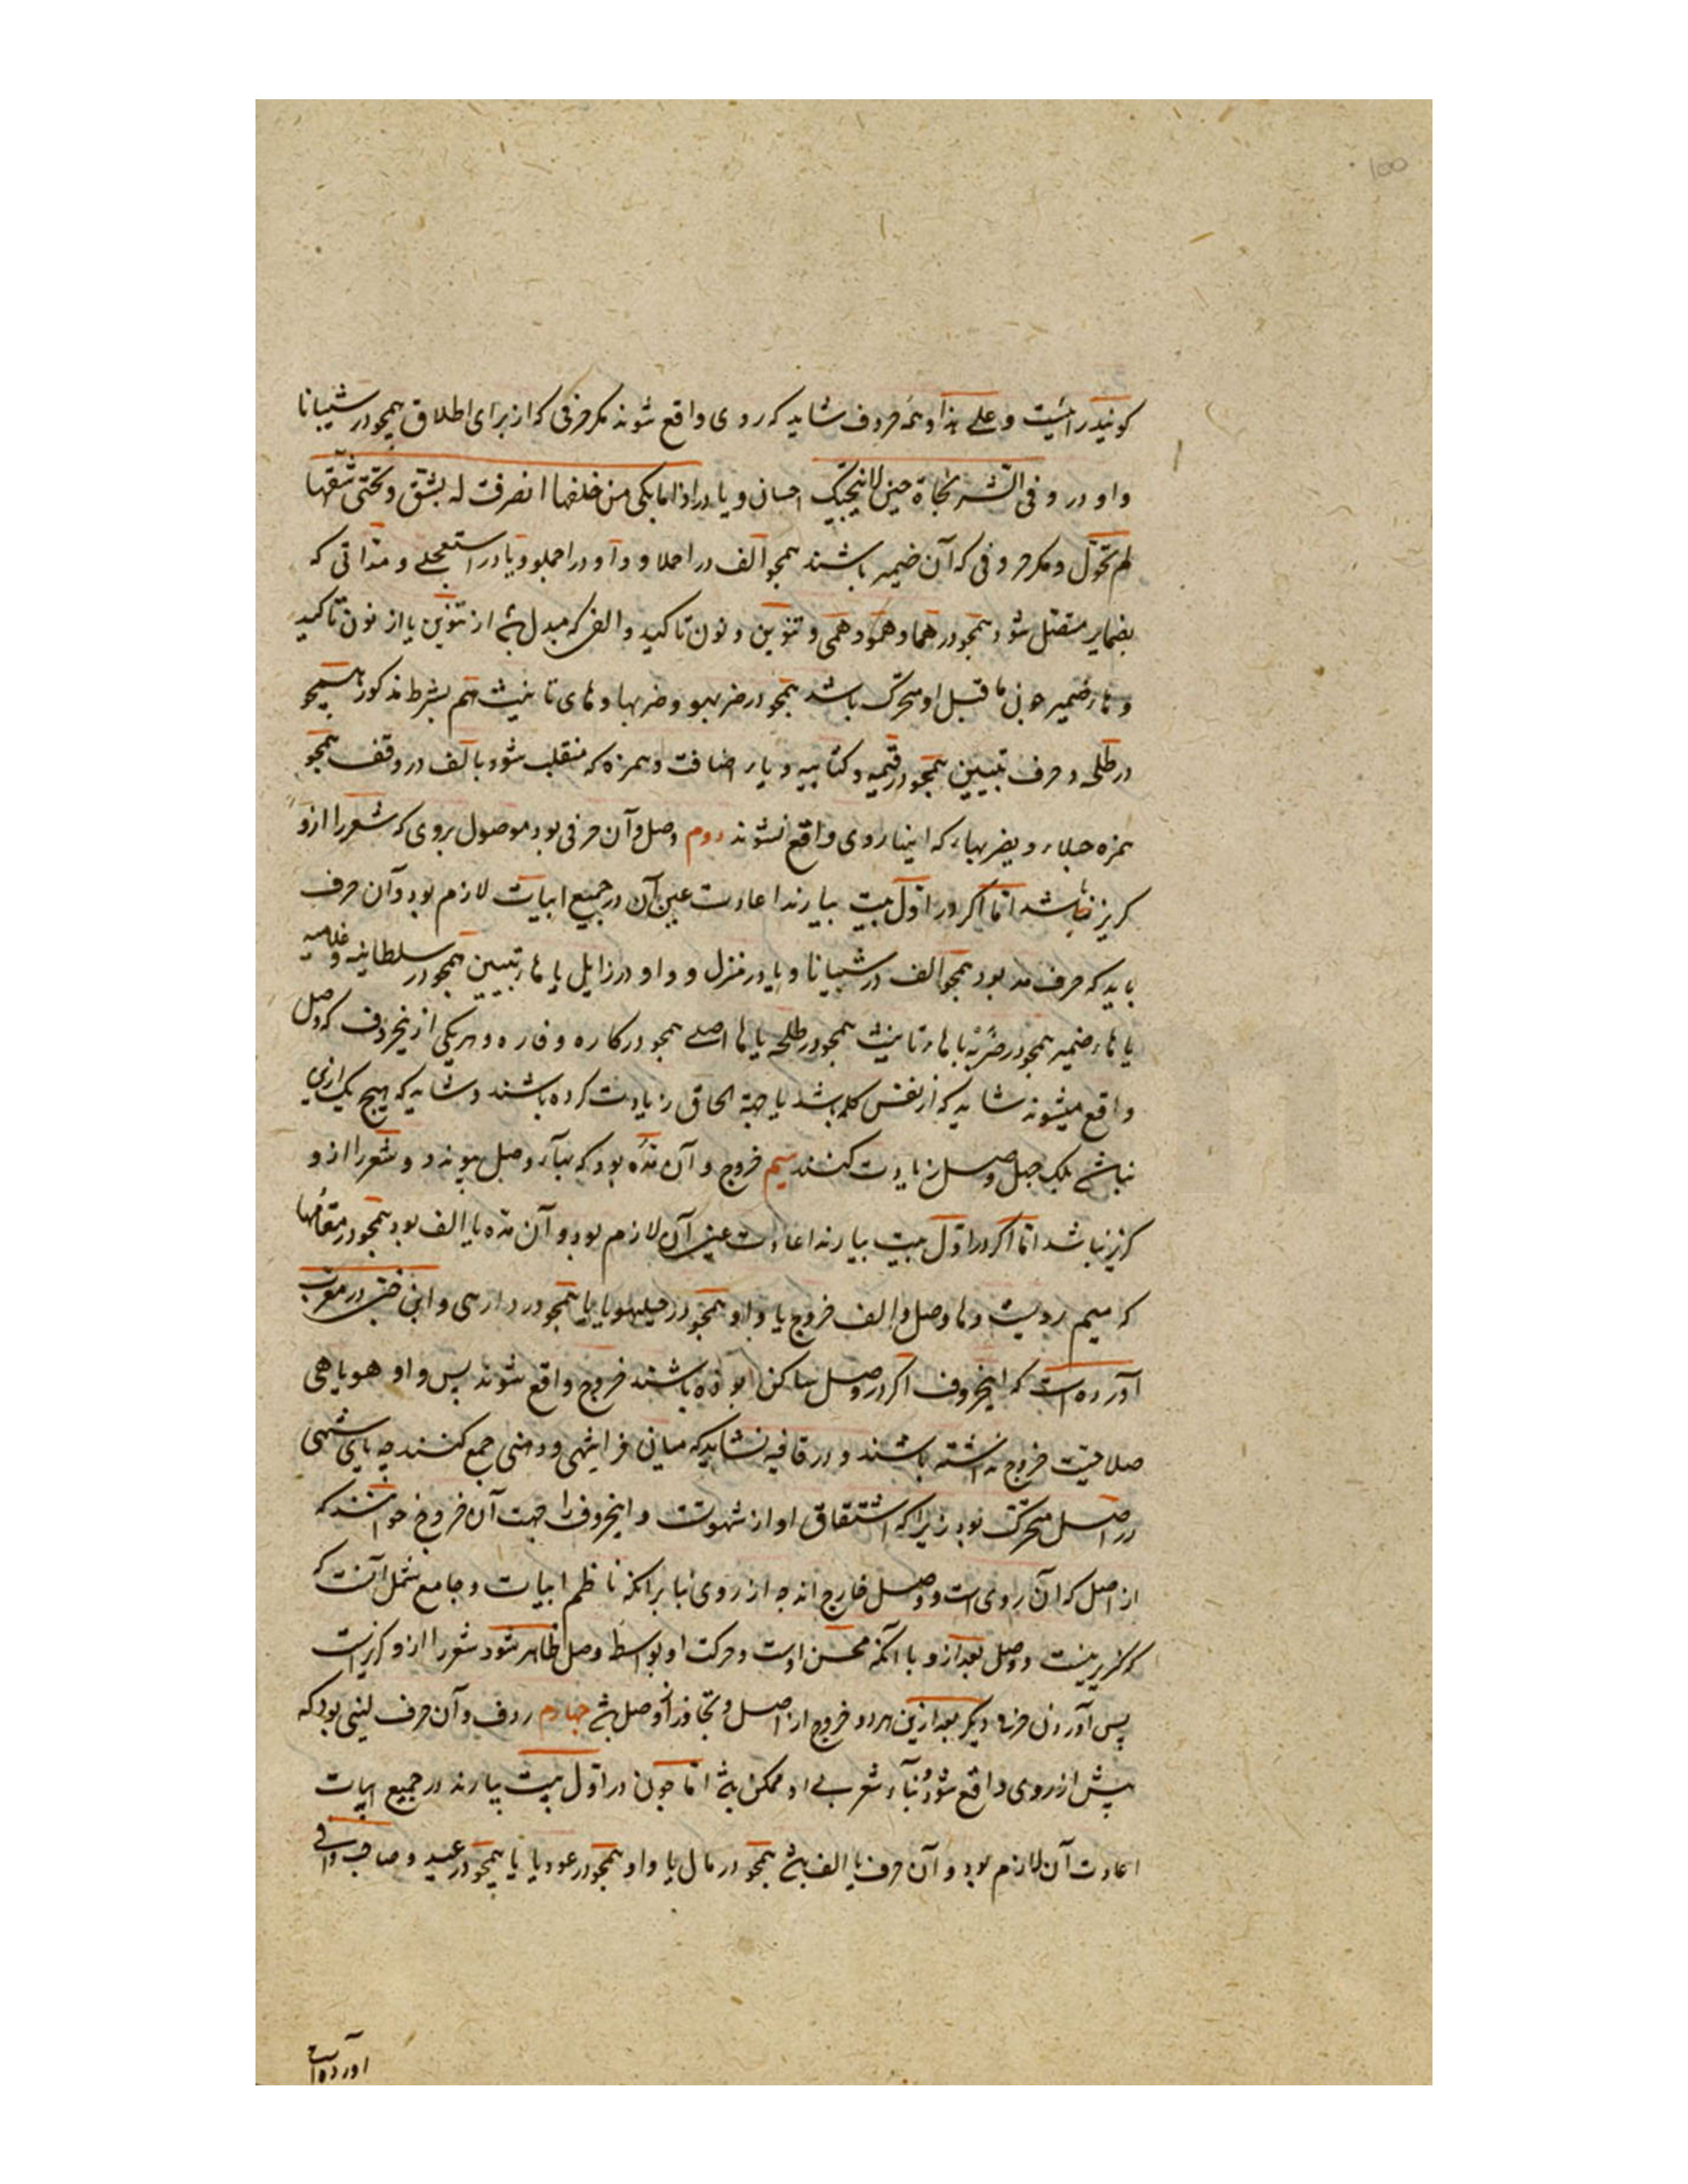 گویند رائیست و علی هذا و همه حروف شاید که روی واقع شوند مگر حرفی که از برای اطلاق همچو در شیبانا
واو در و فی الشر نجاة حین لا ینجیک احسان و یا در اذا ما بکی من خلفها انصرفت له بشق و تحتی شقها
لم تحول و مگر حروفی که آن ضمیر باشند همچو الف در احملا و واو در احملوو یا در استعجلی و مداتی که
بضمایر متصل شود همچو در هما و همو و همی و تنوین و نون تاکید و الفی که مبدل باشد از تنوین یا از نون تاکید
و هاء ضمیر چون ما قبل او متحرک باشد همچو در ضربهو و ضربها و های تانیث هم بشرط مذکور همچو
در طلحی و حرف تبیین همچو در قیمه و کتابیه و یاء اضافت و همزه که منقلب شود بالف در وقف همچو
همزه حبلاء و یضربهاء که اینها روی واقع نشوند دوم وصل و آن حرفی بود موصول بروی که شعر را ازو
گریز نباشد اما اگر در اول بیت بیارند اعادت عین آن در جمیع ابیات لازم بود و آن حرف
باید که حرف مد بود همچو الف در شیبانا و یا در منزل و واو در زایل یا هاء تبیین همچو در سلطانیه و غلامیه
یا هاء ضمیر همچو در ضربه یا هاء تانیث همچو در طلحه یا هاء اصلی همچو در کاره و فاره و هر یکی ازینحروف که وصل
واقع میشوند شاید که از نفس کلمه باشد یا جهة الحاق زیادت کرده باشند و شاید که هیچ یک ازین
نباشد بلک وصل زیادت کنند سیم خروج و آن مده بود که بهاء وصل پیوندد و شعر را ازو
گریز نباشد اما اگر در اول بیت بیارند اعادت عین آن لازم بود و آن مده یا الف بود همچو در مقامها
که میم رویست و ها وصل و الف خروج یا واو همچو در یا یا همچو در دارهی و ابن جنی در معرب
آورده است که اینحروف اگر در وصل ساکن بوده باشند خروج واقع شوند پس واو هو یا هی
صلاحیت خروج نداشته باشند و در قافیه نشاید که میان و جمع کنند چه یای شهی
در اصل متحرک بود زیرا که اشتقاق او از شهوتست و اینحروف را جهت آن خروج خوانند که
از اصل که آن روی است و وصل خارج اند چه از روی بنا بر آنکه ناظم ابیات و جامع شمل آنست که
گزیر نیست و وصل بعد ازو با آنکه محسن اوست و حرکت او بواسط وصل ظاهر شود شعر را ازو گزیرست
پس آوردن حرفی دیگر بعد ازین هر دو خروج از اصل و تجاوز از وصل باشد چهارم ردف و آن حرف لینی بود که
پیش از روی واقع شود و بناء شعر بی او ممکن باشد اما چون در اول بیت بیارند در جمیع ابیات
اعادت آن لازم بود و آن حرف یا الف باشد همچو در مال یا واو همچو در عود یا یا همچو در عید و صاحب وافی
آورده است
100